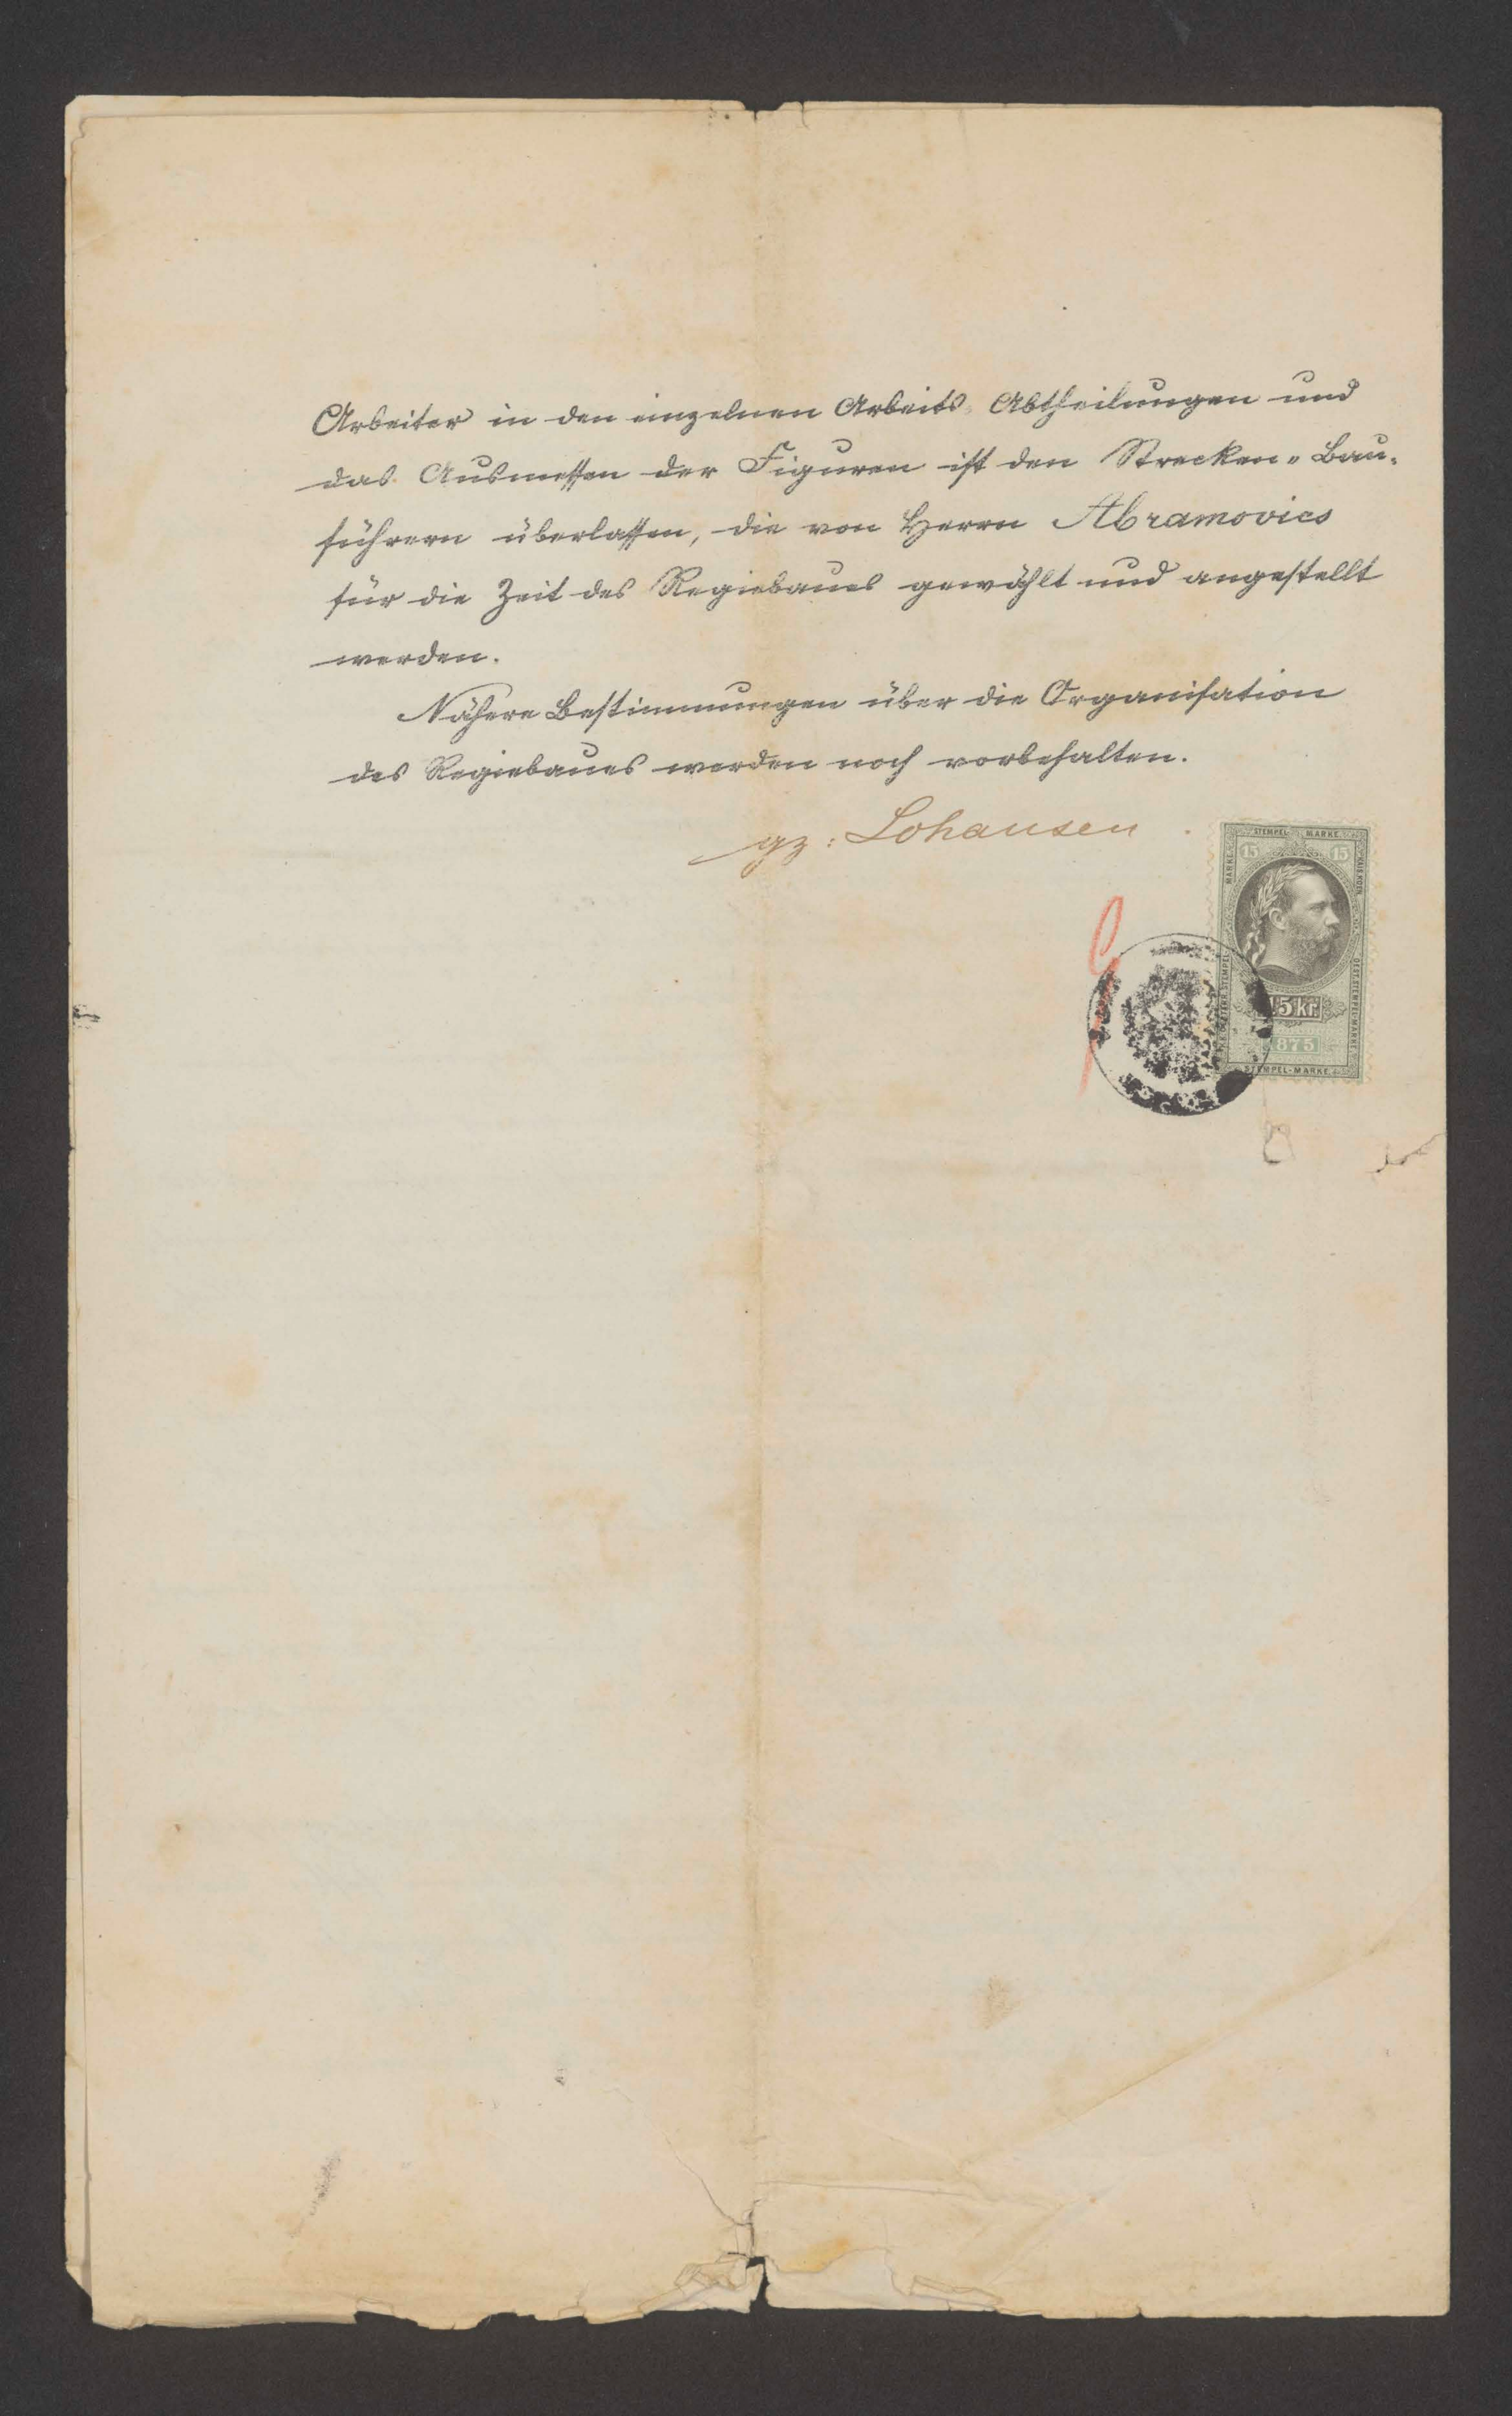 Arbeiter in den einzelnen Arbeits-Abtheilungen und
das Ausmessen der Figuren ist den Strecken-Bau-
führern überlassen, die von Herrn Abramovics
für die Zeit des Regiebaues gewählt und angestellt
werden.
Nähere Bestimmungen über die Organisation
des Regiebaues werden noch vorbehalten.
gz: Lohausen
STEMPEL MARKE
15 15
15 kr.
1875
STEMPEL-MARKE